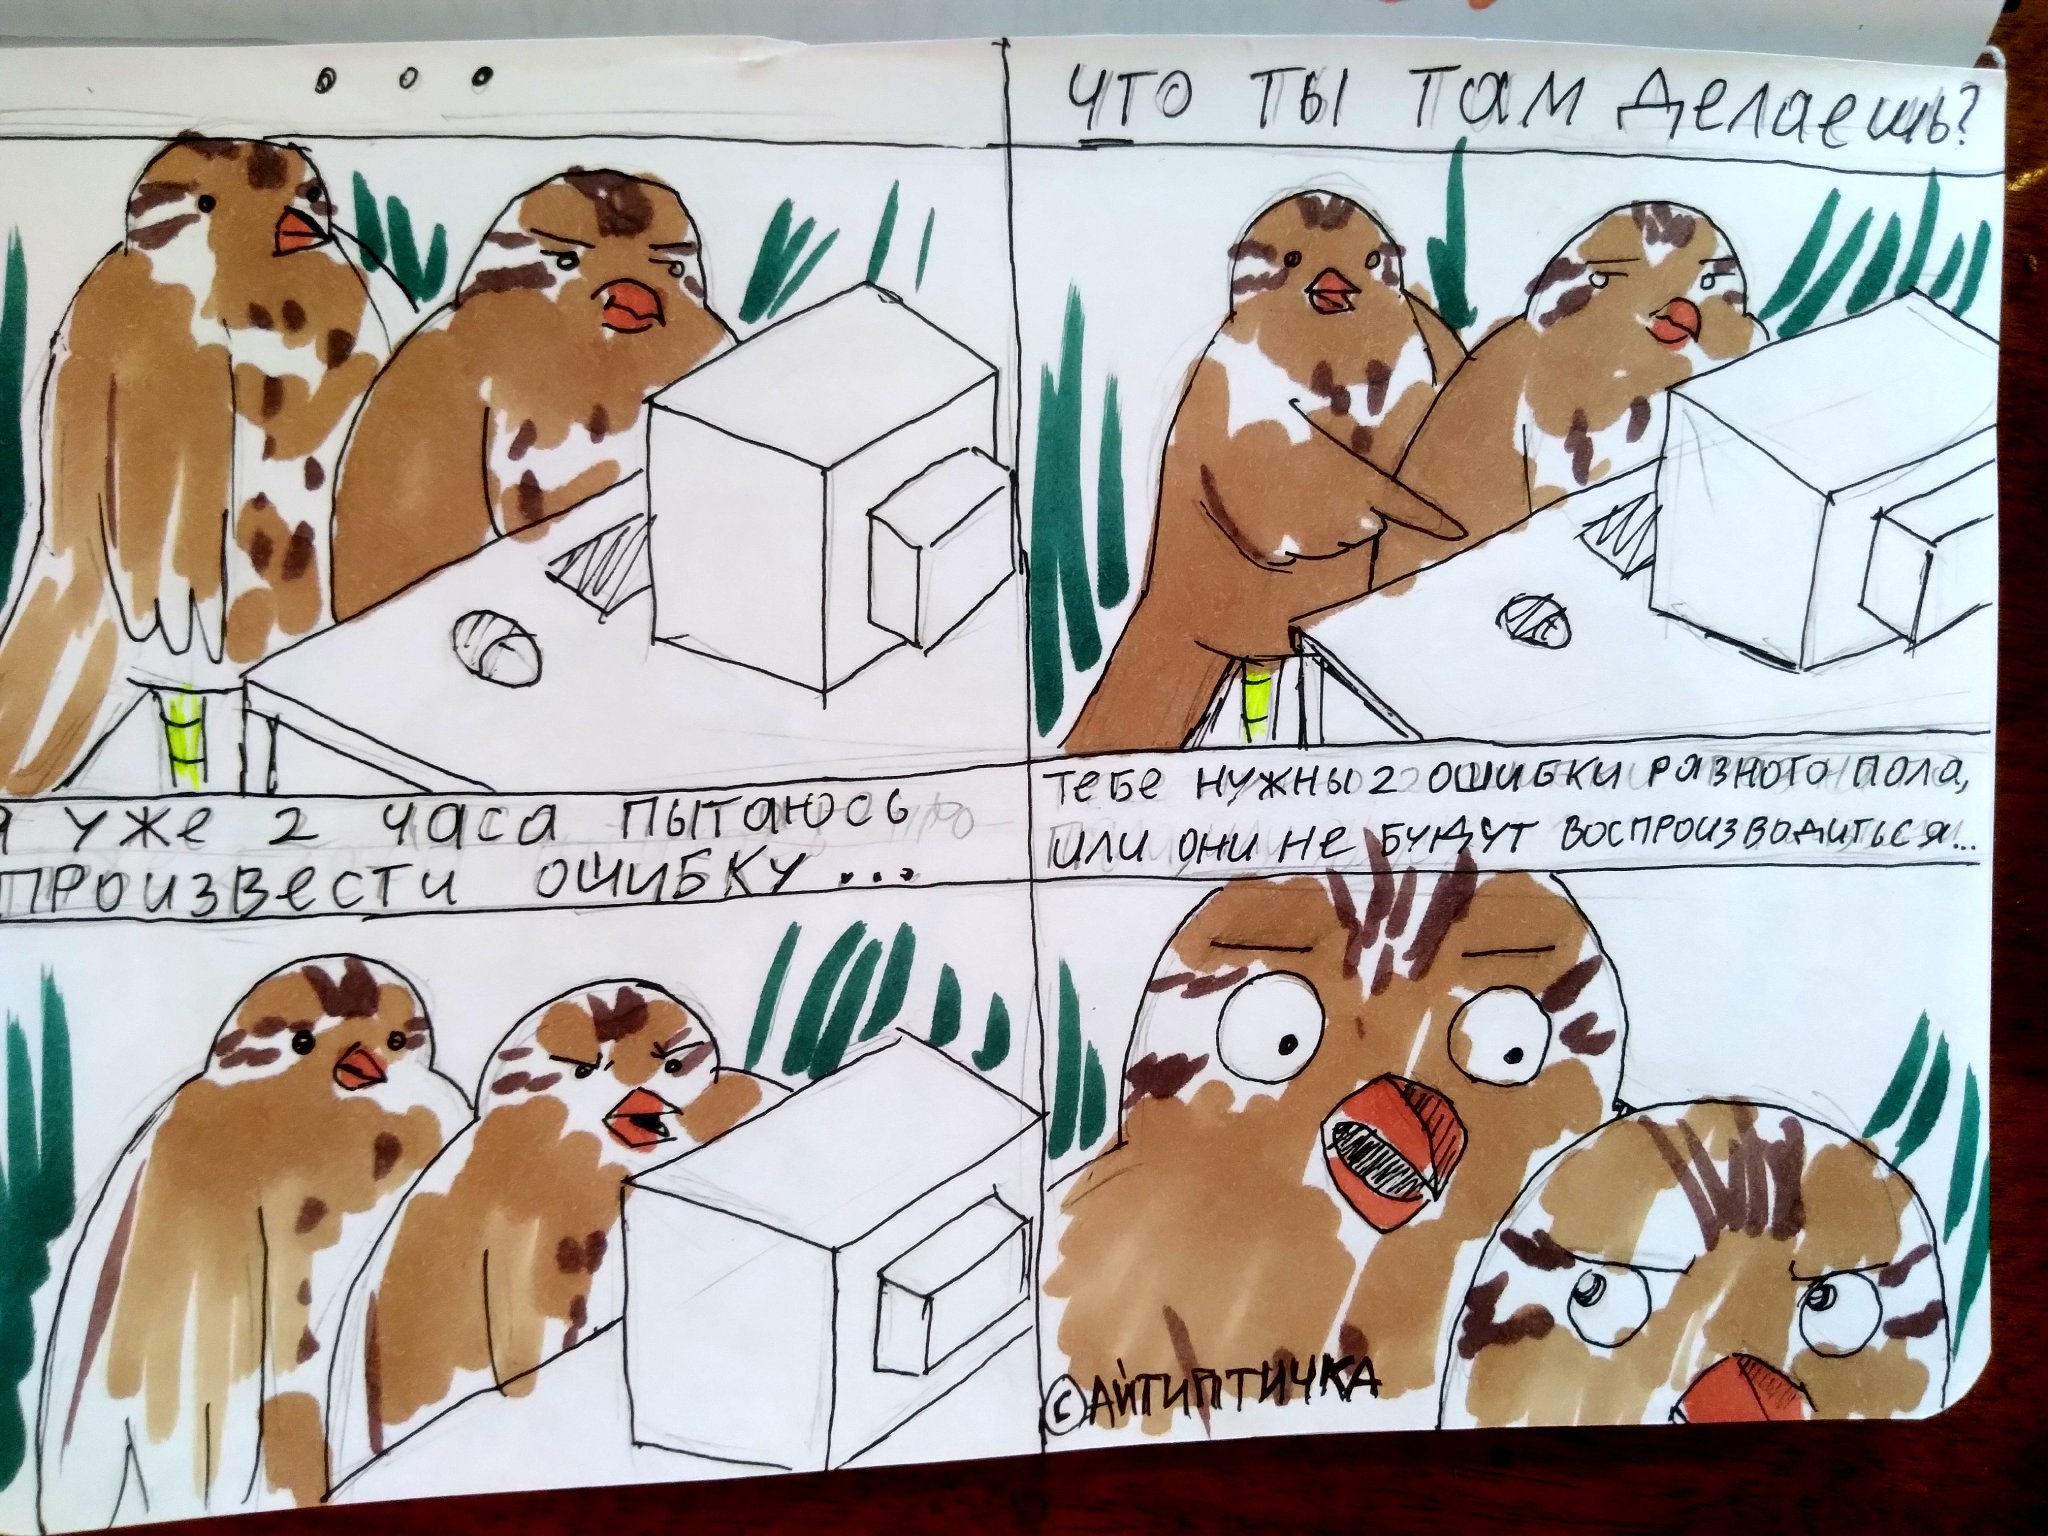 ...
ЧТО ТЫ ТАМ ДЕЛАЕШЬ?
Я УЖЕ 2 ЧАСА ПЫТАЮСЬ
ПРОИЗВЕСТИ ОШИБКУ...
ТЕБЕ НУЖНЫ 2 ОШИБКИ РАЗНОГО ПОЛА,
ИЛИ ОНИ НЕ БУДУТ ВОСПРОИЗВОДИТЬСЯ...
©АЙТИПТИЧКА